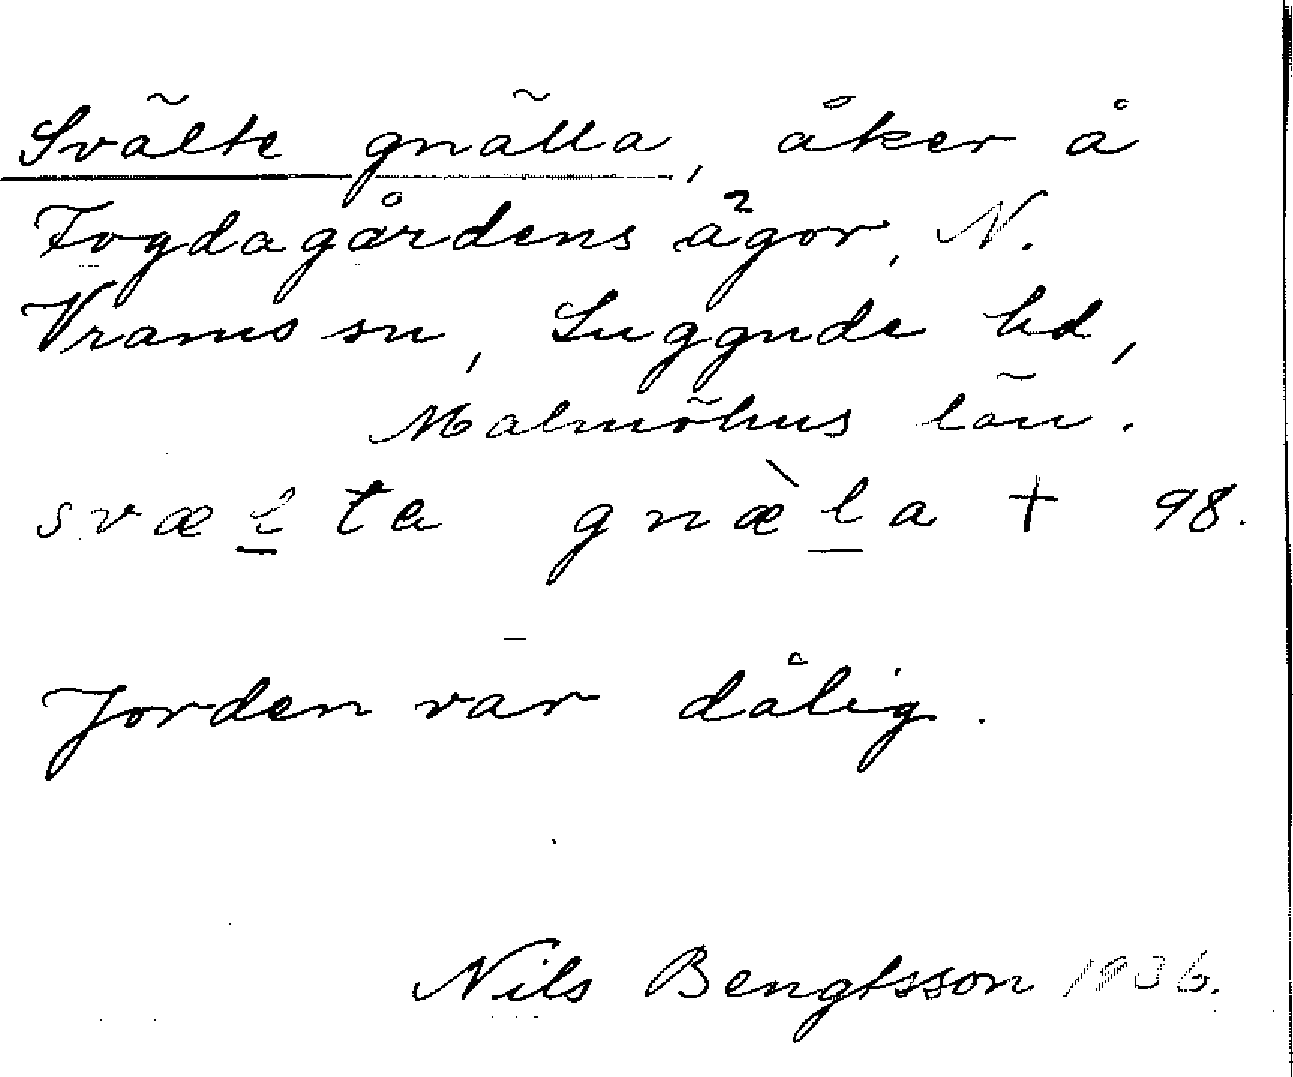 Svälte gnälla, åker å
Fogdagårdens ägor, N.
Vrams sn, Luggude hd,
Malmöhus län.
svælta gnæ̀la + 98.
Jorden var dålig.
Nils Bengtsson 1936.